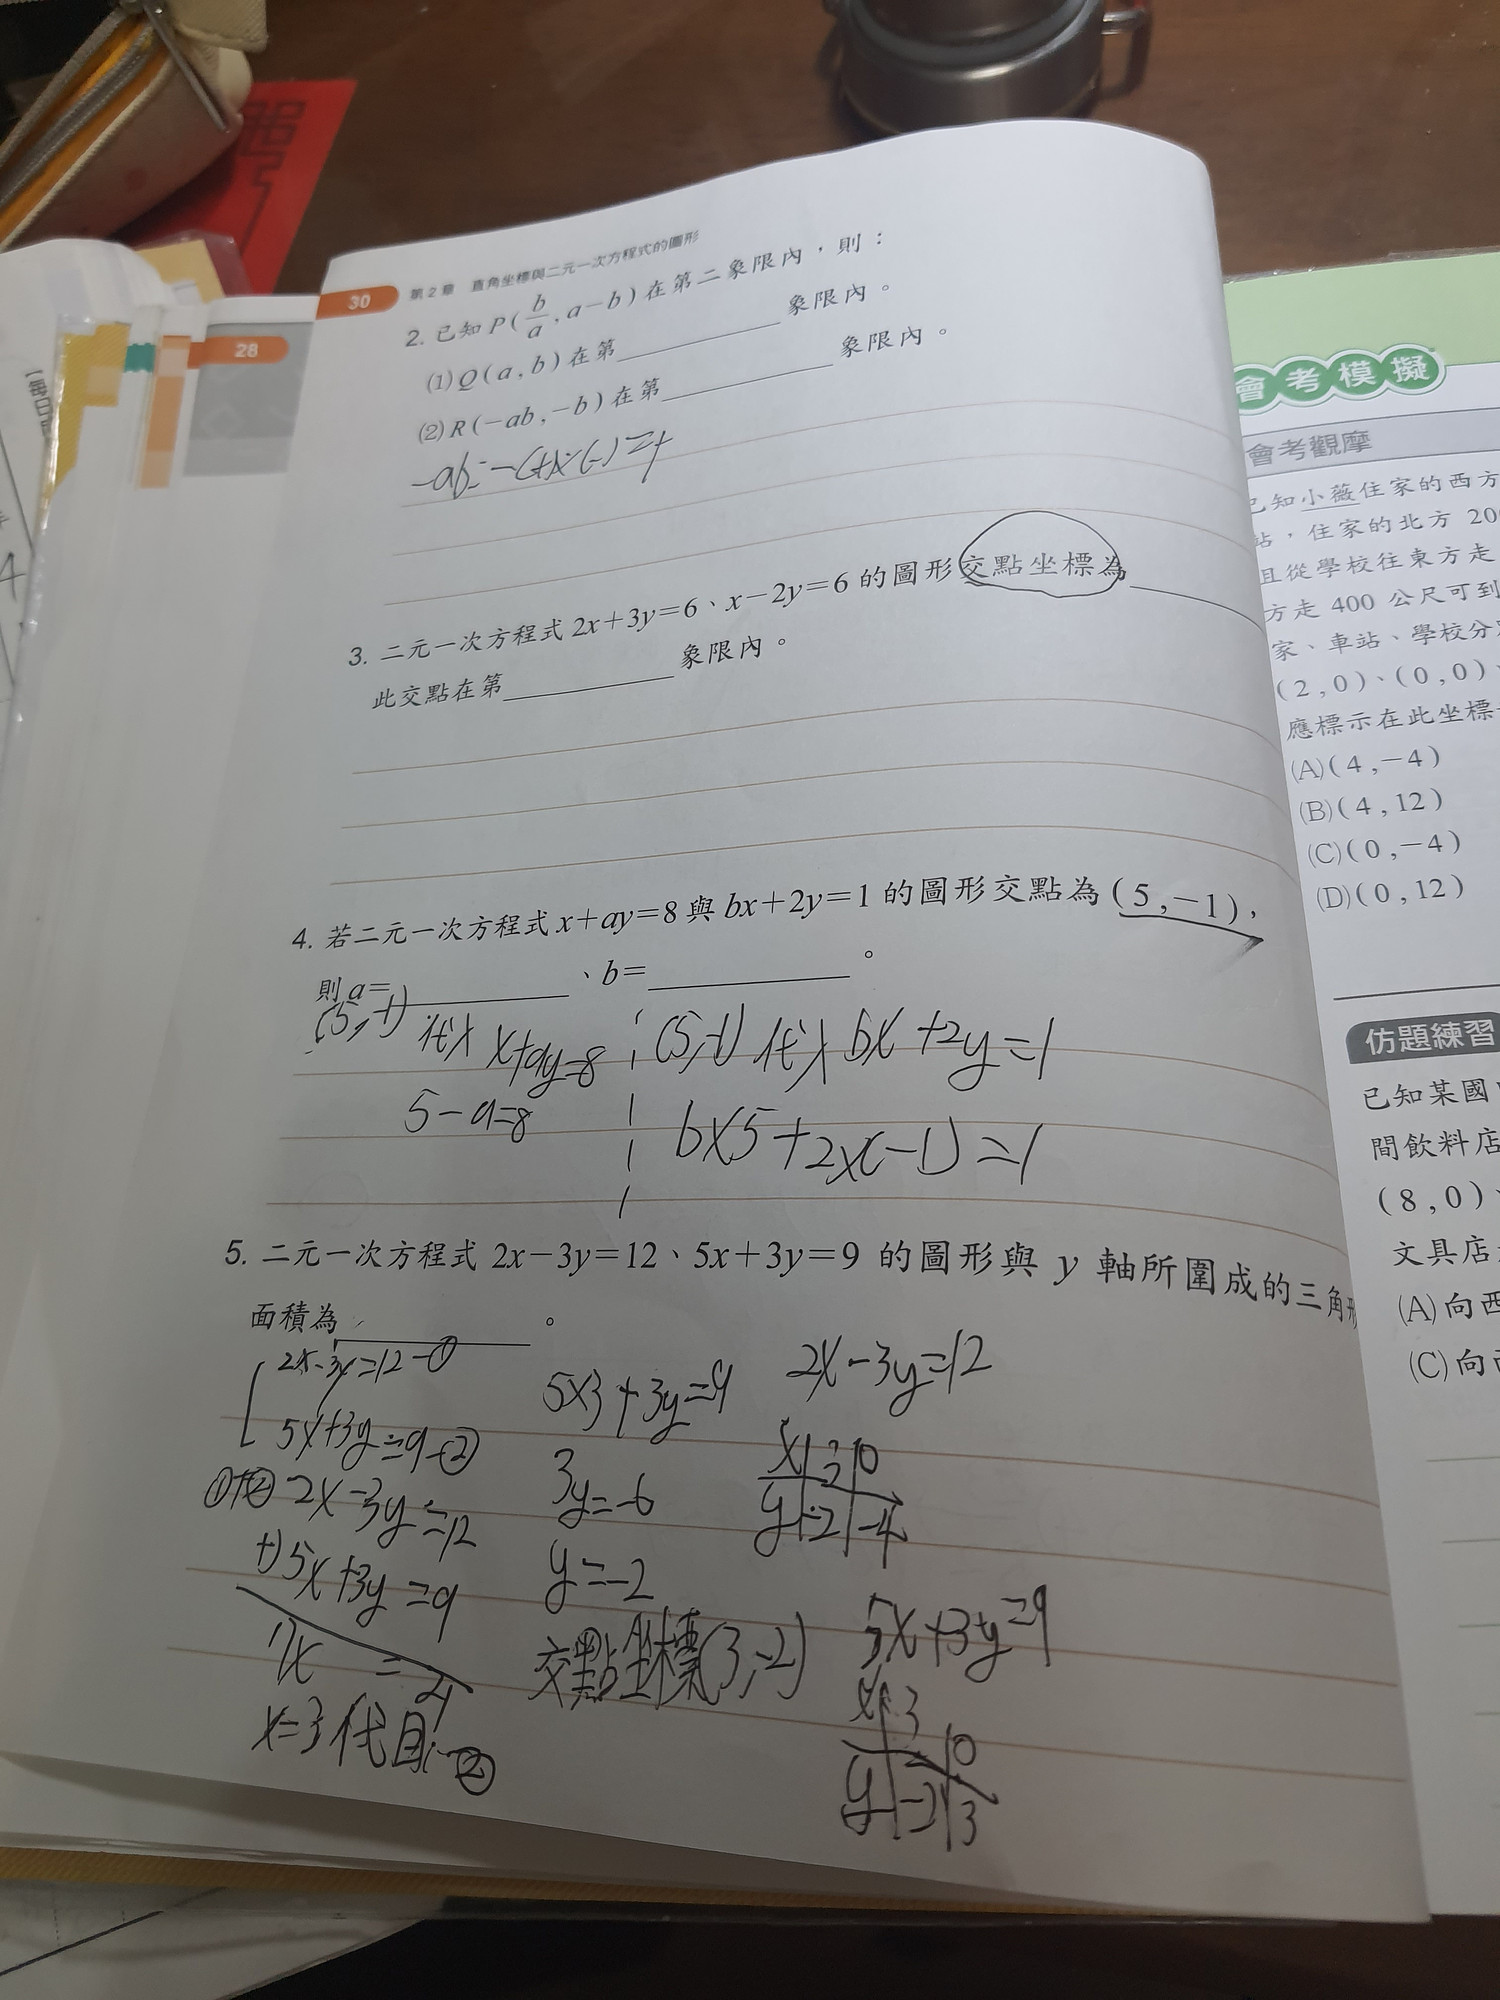 30 第2章 直角坐標與二元一次方程式的圖形
28
2. 已知 P(b/a, a−b) 在第二象限內，則：
(1) Q(a, b) 在第 象限內。
(2) R(−ab, −b) 在第 象限內。
3. 二元一次方程式 2x+3y=6、x−2y=6 的圖形交點坐標為
此交點在第 象限內。
4. 若二元一次方程式 x+ay=8 與 bx+2y=1 的圖形交點為 (5,−1)，
則 a= 、b= 。
(5,-1) 代入 x+ay=8
5-a=8
(5,-1) 代入 bx+2y=1
bx5+2x(-1)=1
5. 二元一次方程式 2x−3y=12、5x+3y=9 的圖形與 y 軸所圍成的三角形
面積為 。
2x-3y=12-①
5x+3y=9-②
①+② 2x-3y=12
+) 5x+3y=9
7x = 21
x=3代
②
5x3+3y=9
3y=-6
y=-2
交點坐標(3,-2)
2x-3y=12
x 3 0
y -2 -4
5x+3y=9
x 3 0
y -2 3
會考模擬
會考觀摩
已知小薇住家的西方
站，住家的北方 200
且從學校往東方走
方走 400 公尺可到
家、車站、學校分
(2,0)、(0,0)、
應標示在此坐標
(A)(4,−4)
(B)(4,12)
(C)(0,−4)
(D)(0,12)
仿題練習
已知某國
間飲料店
(8,0)、
文具店
(A)向西
(C)向